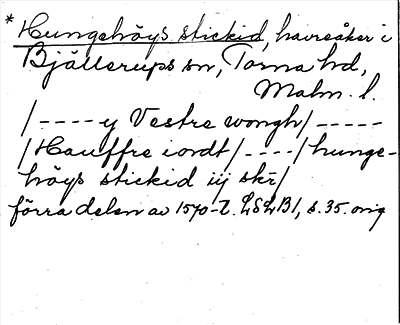 * Hungehöys stickid, havreåker i
Bjällerups sn, Torna hd,
Malm. l.
/---- y Vestre wongh/-----
/Hauffre iordt/----/hunge-
höys stickid iij skr/
förra delen av 1570-t. LSLB1, s. 35. orig